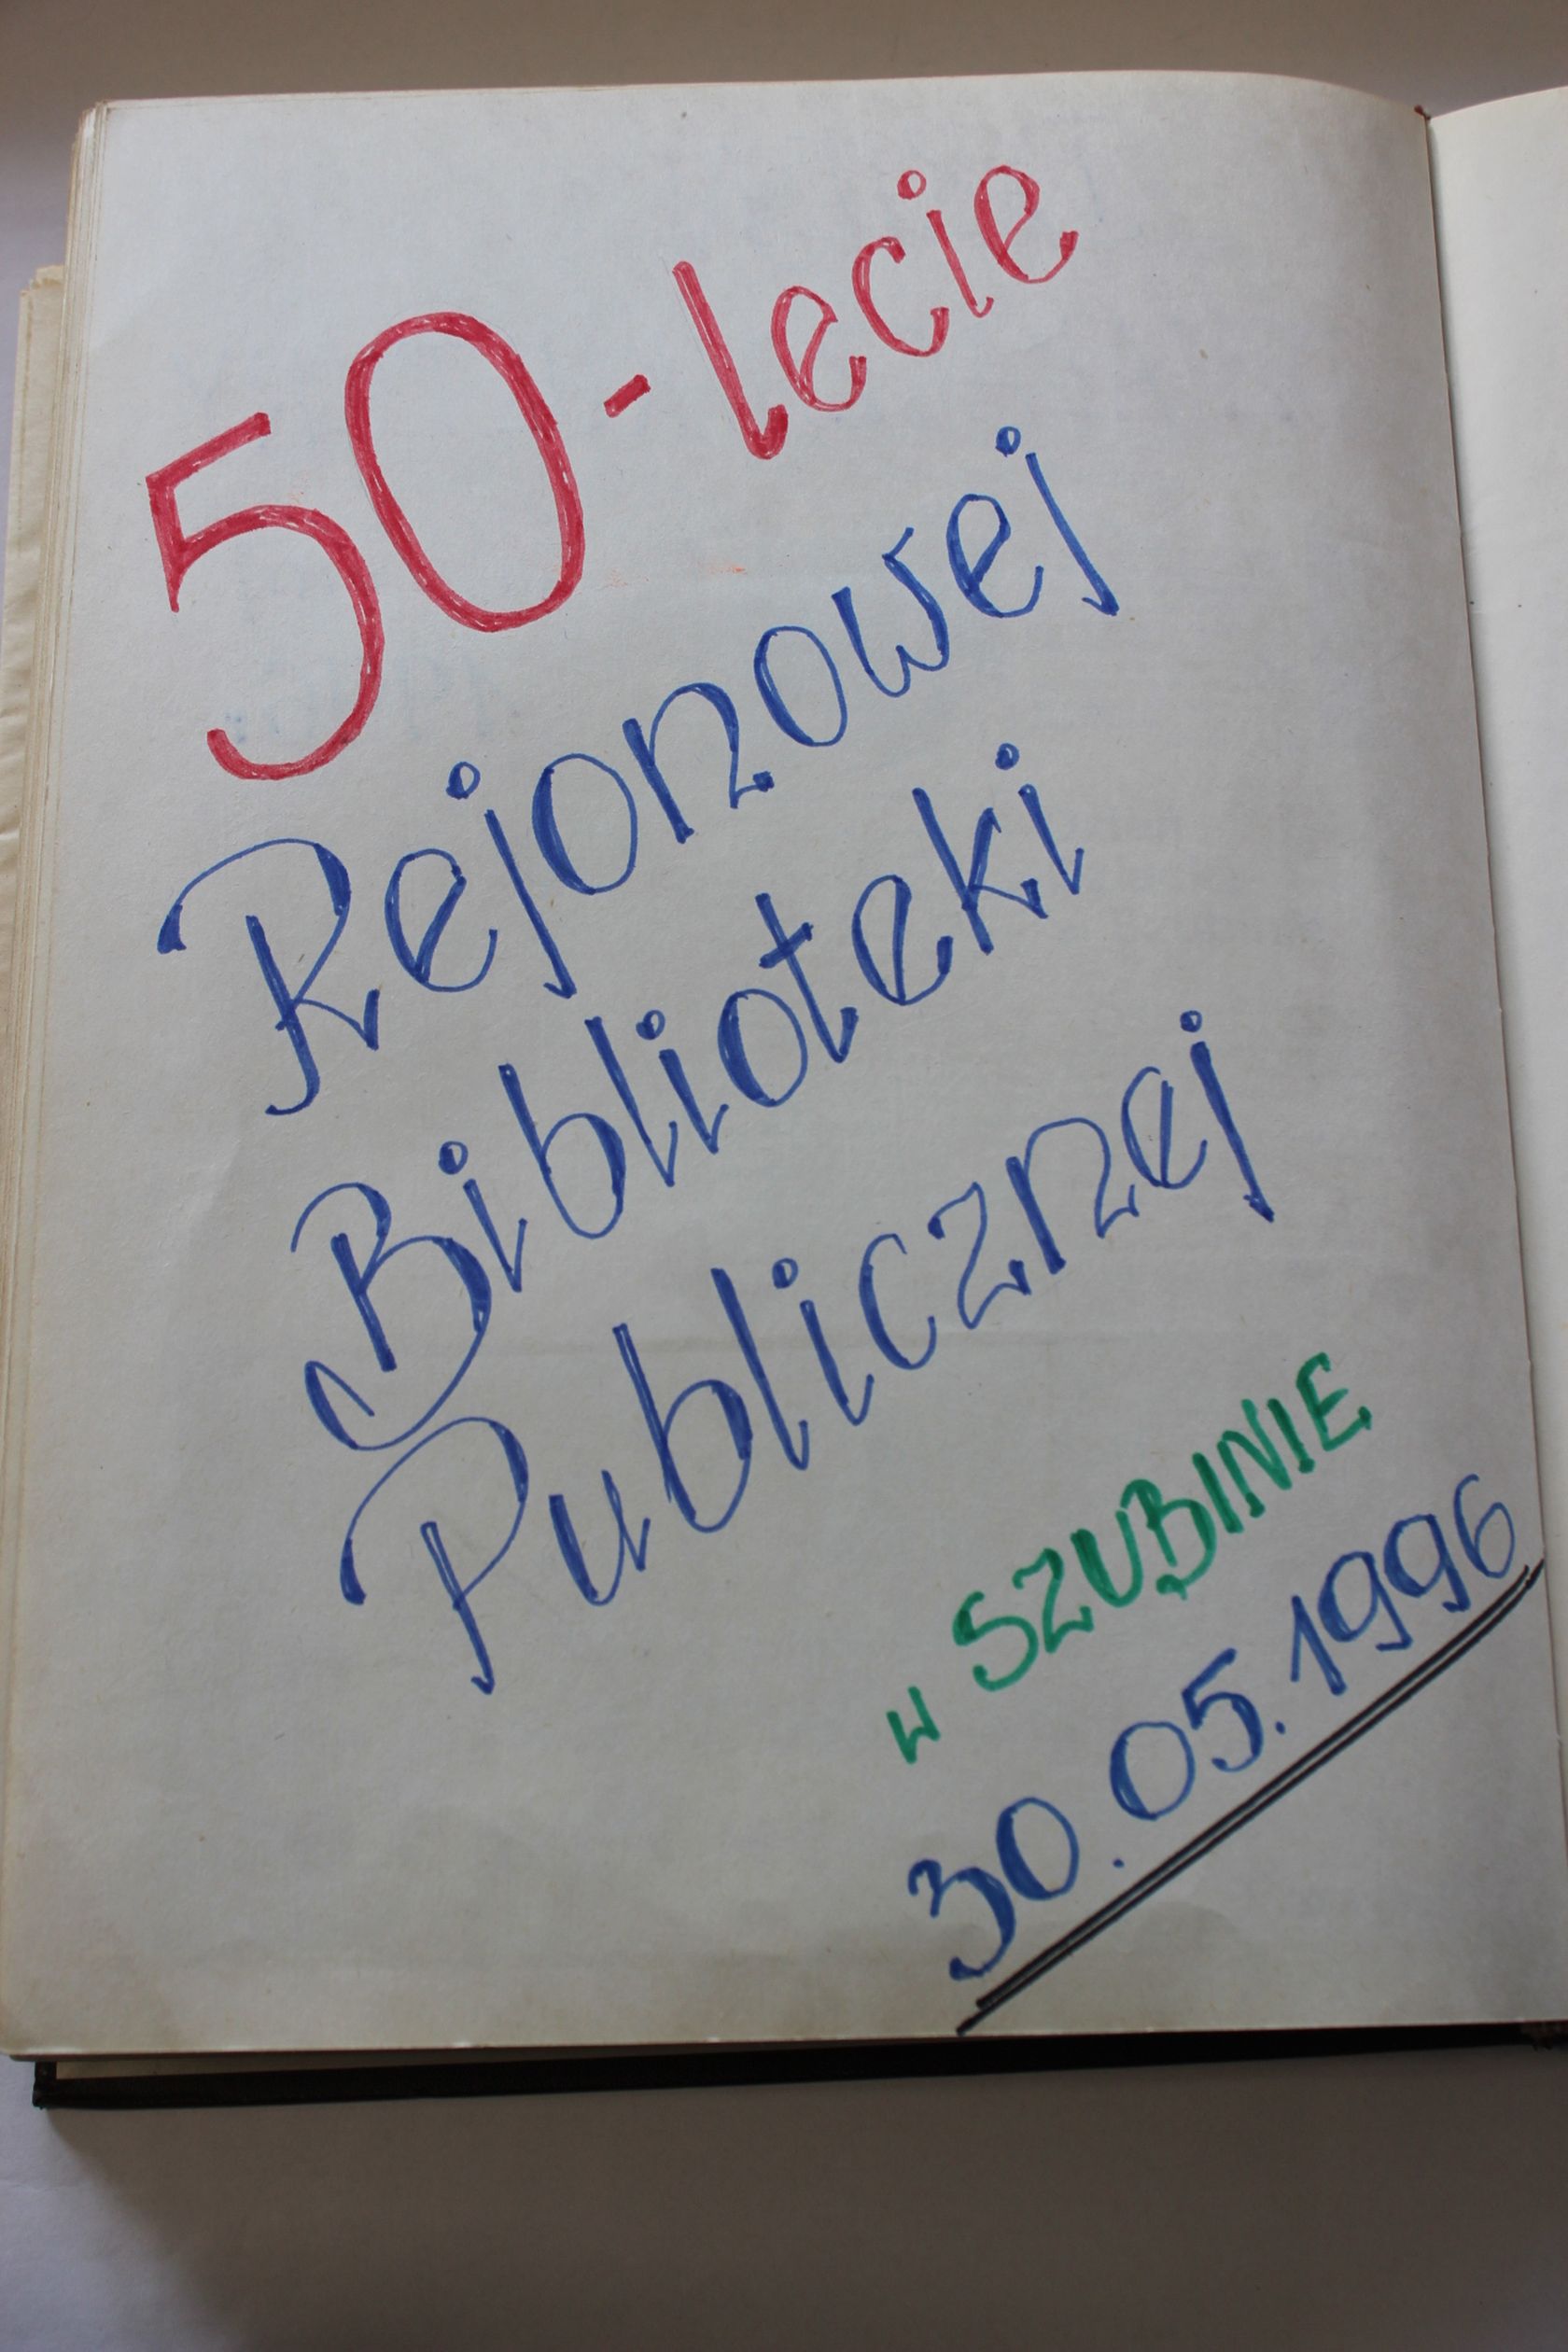 50-lecie
Rejonowej
Biblioteki
Publicznej
w SZUBINIE
30.05.1996